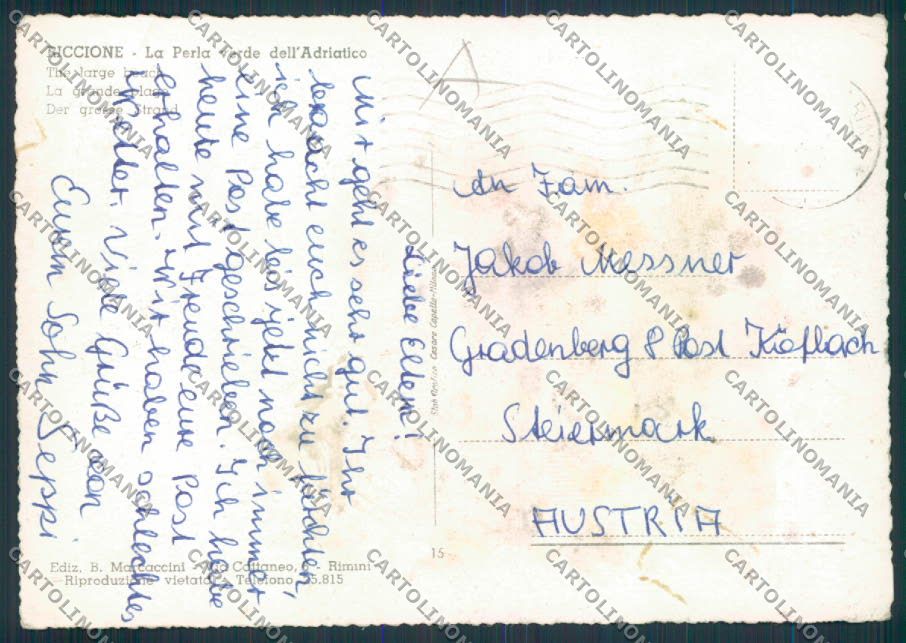 RICCIONE - La Perla Verde dell'Adriatico
The large beach
La grande plage
Der grosse Strand
Liebe Eltern!
Mir geht es sehr gut. Ihr
braucht euch nicht zu fürchten,
ich habe bis jetzt noch immer
eine Post geschrieben. Ich habe
heute mit Freude eure Post
erhalten. Wir haben schlechtes
Wetter. Viele Grüße von
Eurem Sohn Seppi
An Fam.
Jakob Messner
Gradenberg 8 Post Köflach
Steiermark
AUSTRIA
A
15
Stab. Grafico Cesare Capello - Milano
Ediz. B. Marcaccini - Via Cattaneo, - Rimini
Riproduzione vietata - Telefono 25.815
CARTOLINOMANIA